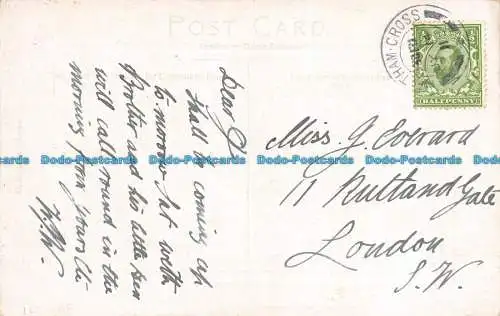 POST CARD
THAM CROSS
HALFPENNY
Dear G
Shall be coming up
to-morrow Sat with
Brother and his little
will call round in the
morning from yours
Miss. G. Everard
11 Rutland Gate
London
S.W.
Dodo-Postcards Dodo-Postcards Dodo-Postcards Dodo-Postcards Dodo-Postcards